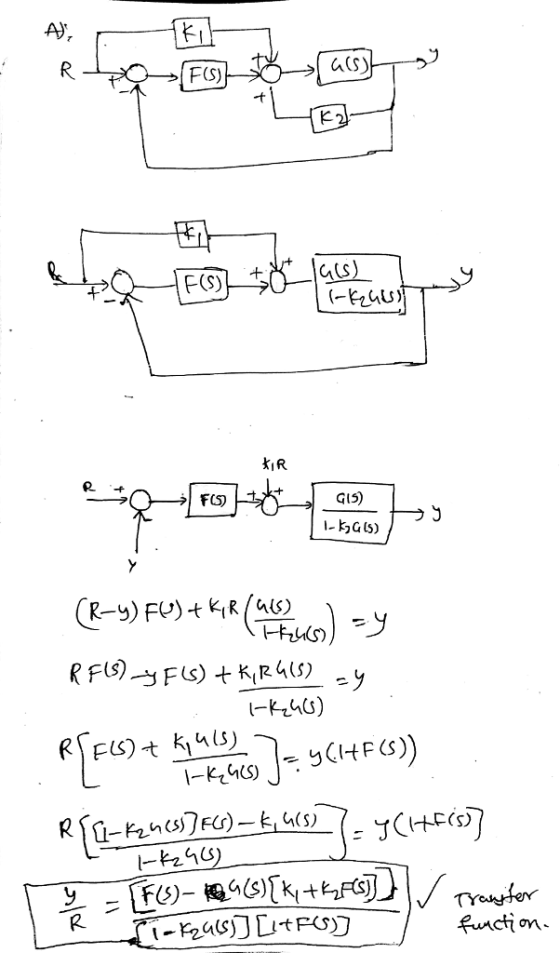 A),
K₁
R + - F(S) + + + G(S) y
K₂
K₁
R + - F(S) + + G(S)/(1-K₂G(S)) y
K₁R
R + - F(S) + + G(S)/(1-K₂G(S)) y
y
(R-y) F(s) + K₁R (G(S)/(1-K₂G(S))) = y
R F(S) - y F(S) + K₁RG(S)/(1-K₂G(S)) = y
R[F(S) + K₁G(S)/(1-K₂G(S))] = y(1+F(S))
R[([1-K₂G(S)]F(S) - K₁G(S))/(1-K₂G(S))] = y(1+F(S)]
y/R = [F(S) - G(S)[K₁+K₂F(S)]]/([1-K₂G(S)][1+F(S)]) ✓ Transfer
function.